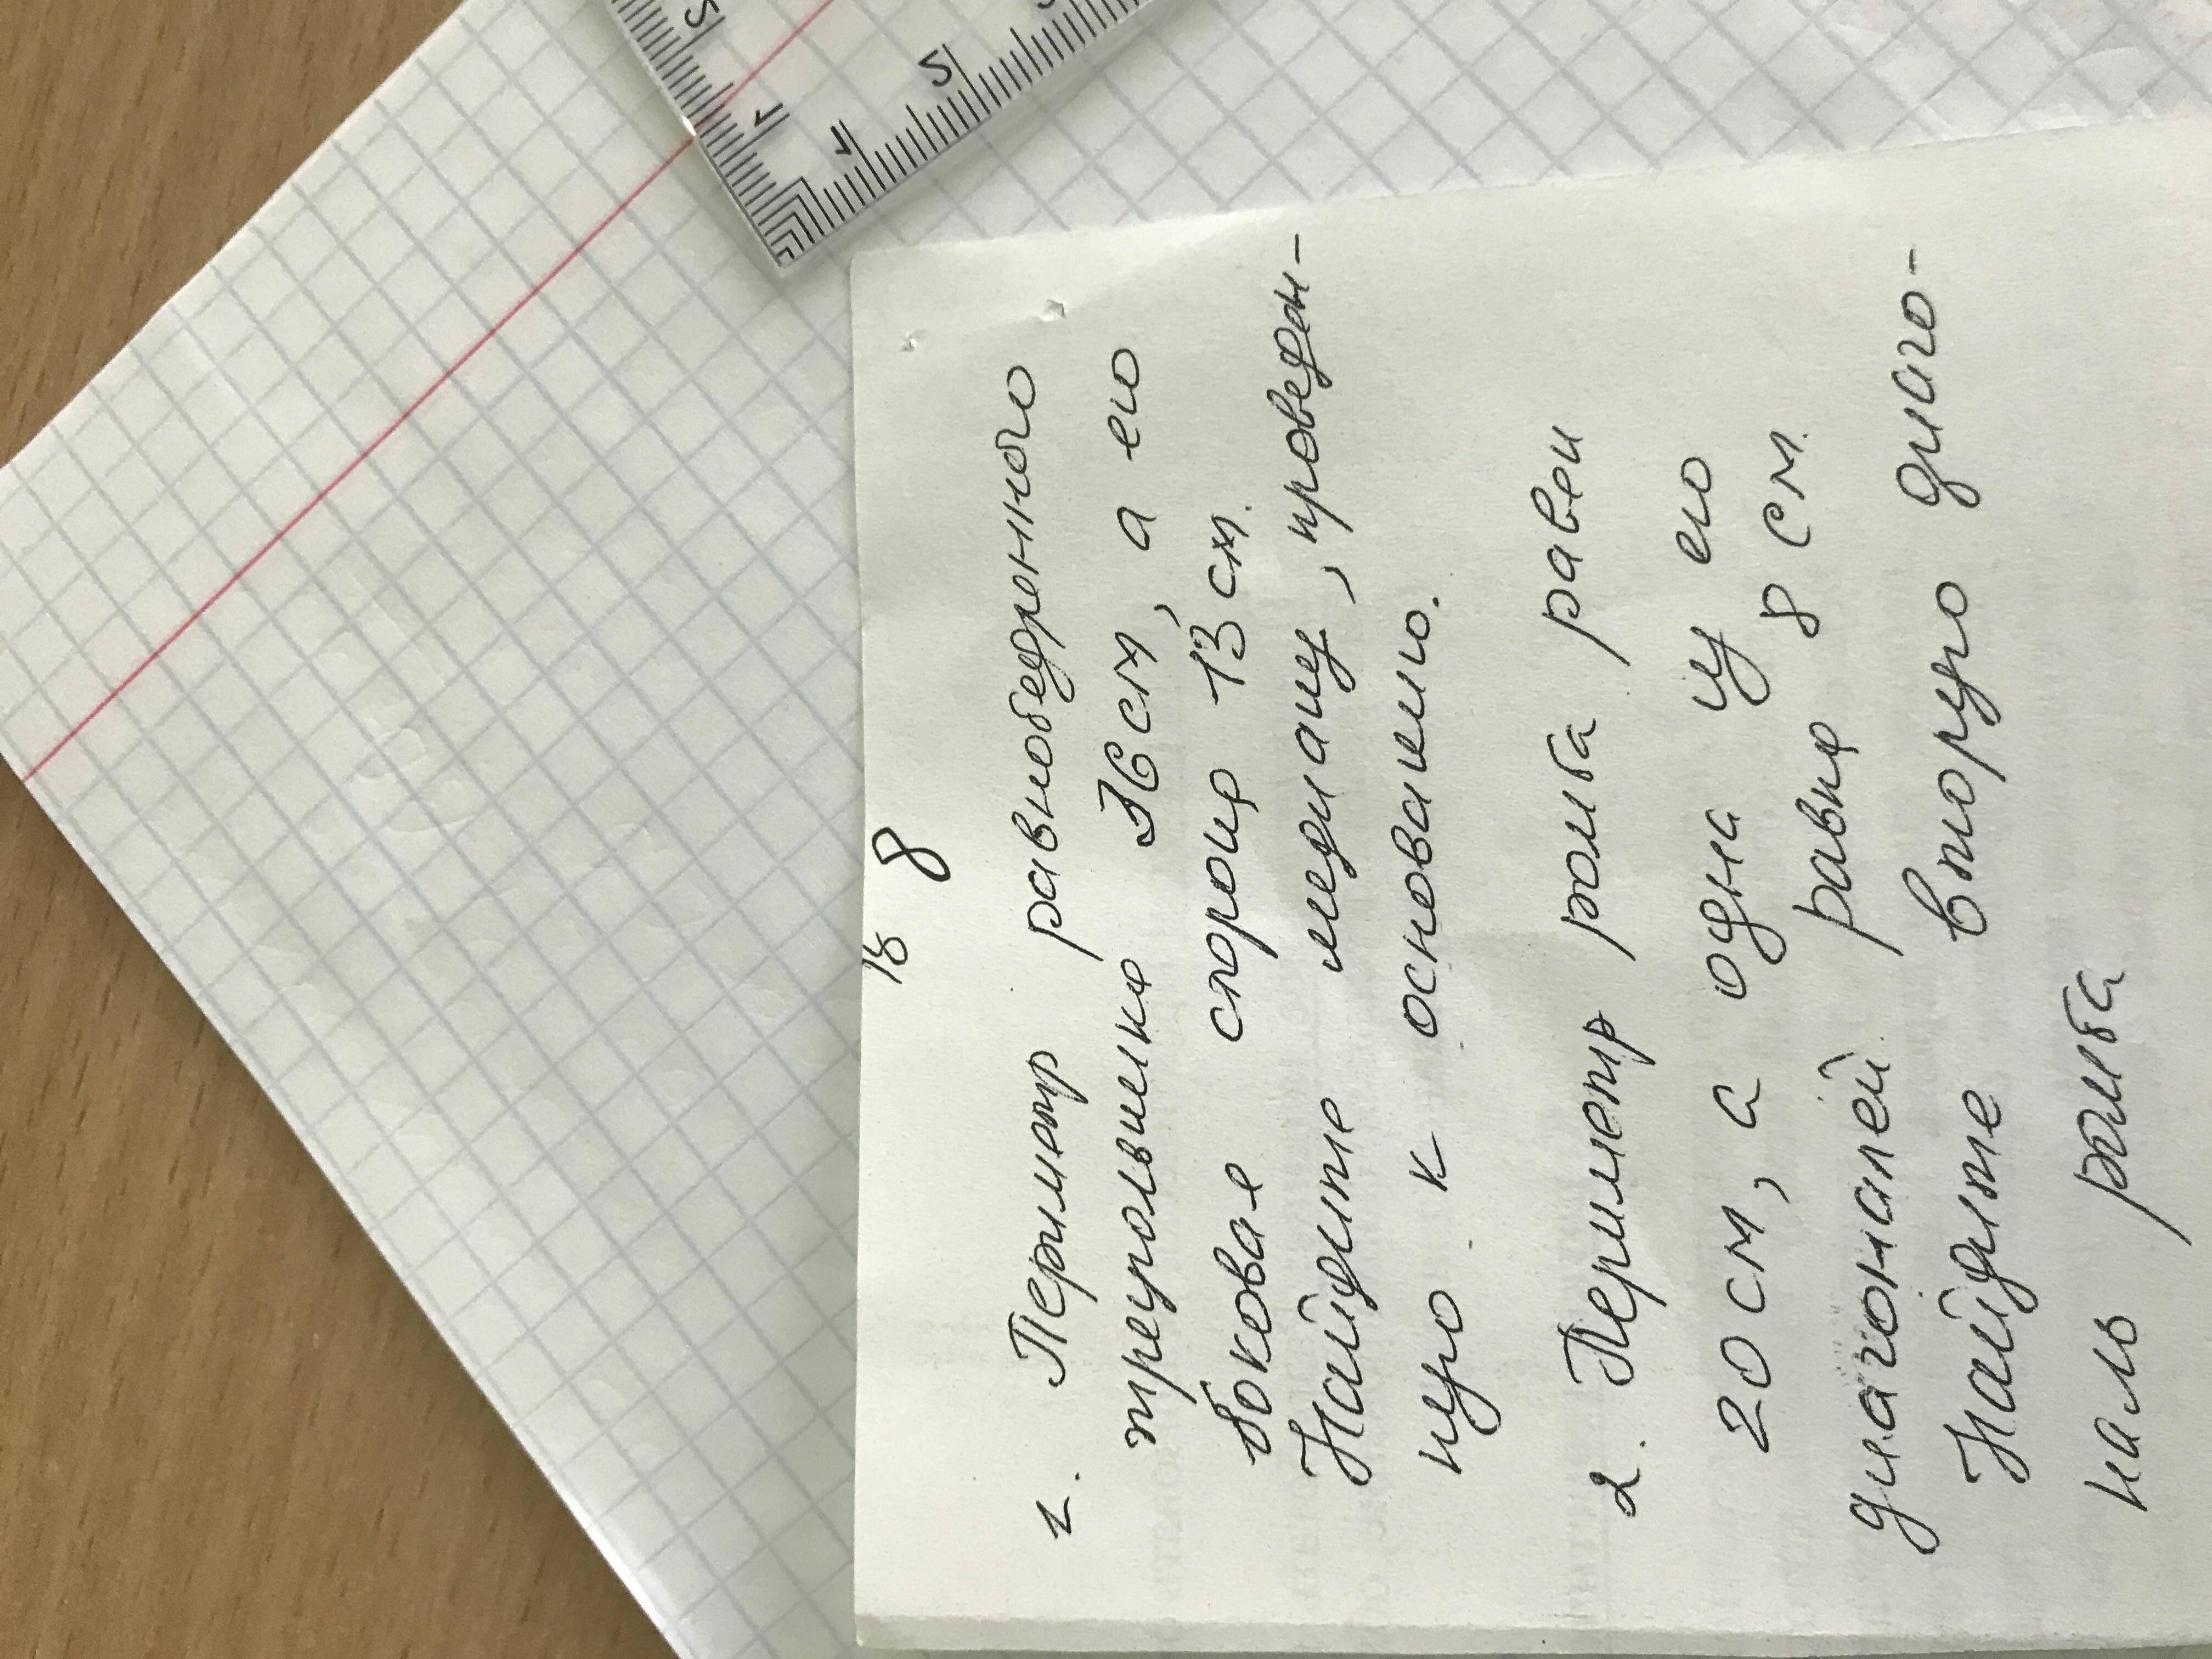 в 8
1. Периметр равнобедренного
треугольника 36 см, а его
боковая сторона 13 см.
Найдите медиану, проведен-
ную к основанию.
2. Периметр ромба равен
20 см, а одна из его
диагоналей равна 8 см.
Найдите вторую диаго-
наль ромба
1
2
1